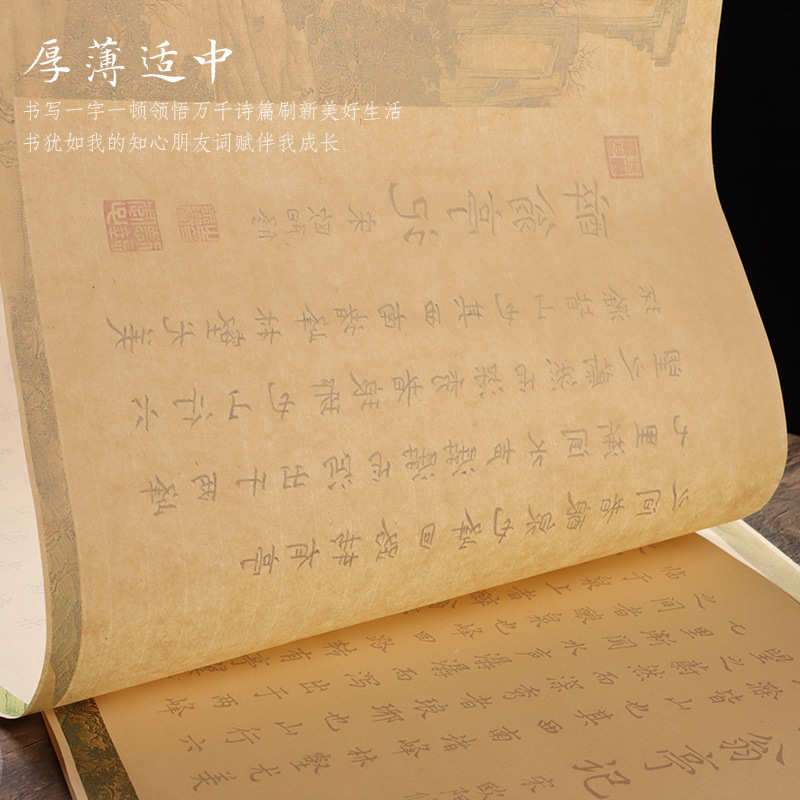 厚薄适中
书写一字一顿领悟万千诗篇刷新美好生活
书犹如我的知心朋友词赋伴我成长
醉翁亭记
宋 欧阳修
环滁皆山也其西南诸峰林壑尤美
望之蔚然而深秀者琅琊也山行六
七里渐闻水声潺潺而泻出于两峰
之间者酿泉也峰回路转有亭
翁亭记
宋 欧阳
滁皆山也其西南诸峰林壑尤美
望之蔚然而深秀者琅琊也山行六
七里渐闻水声潺潺而泻出于两峰
之间者酿泉也峰回路转有亭翼
临于泉上者醉